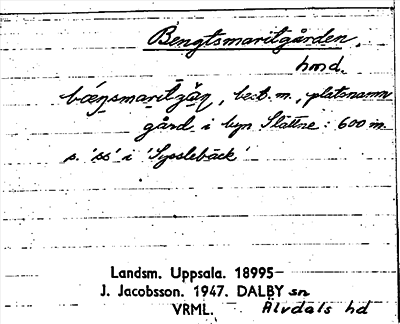 Bengtsmaritgården,
hmd.
bæŋsmaritgån, best. m., platsnamn
gård i byn Slättne: 600 m
s. 'ss' i 'Sysslebäck'
Landsm. Uppsala. 18995
J. Jacobsson. 1947. DALBY sn
VRML. Älvdals hd